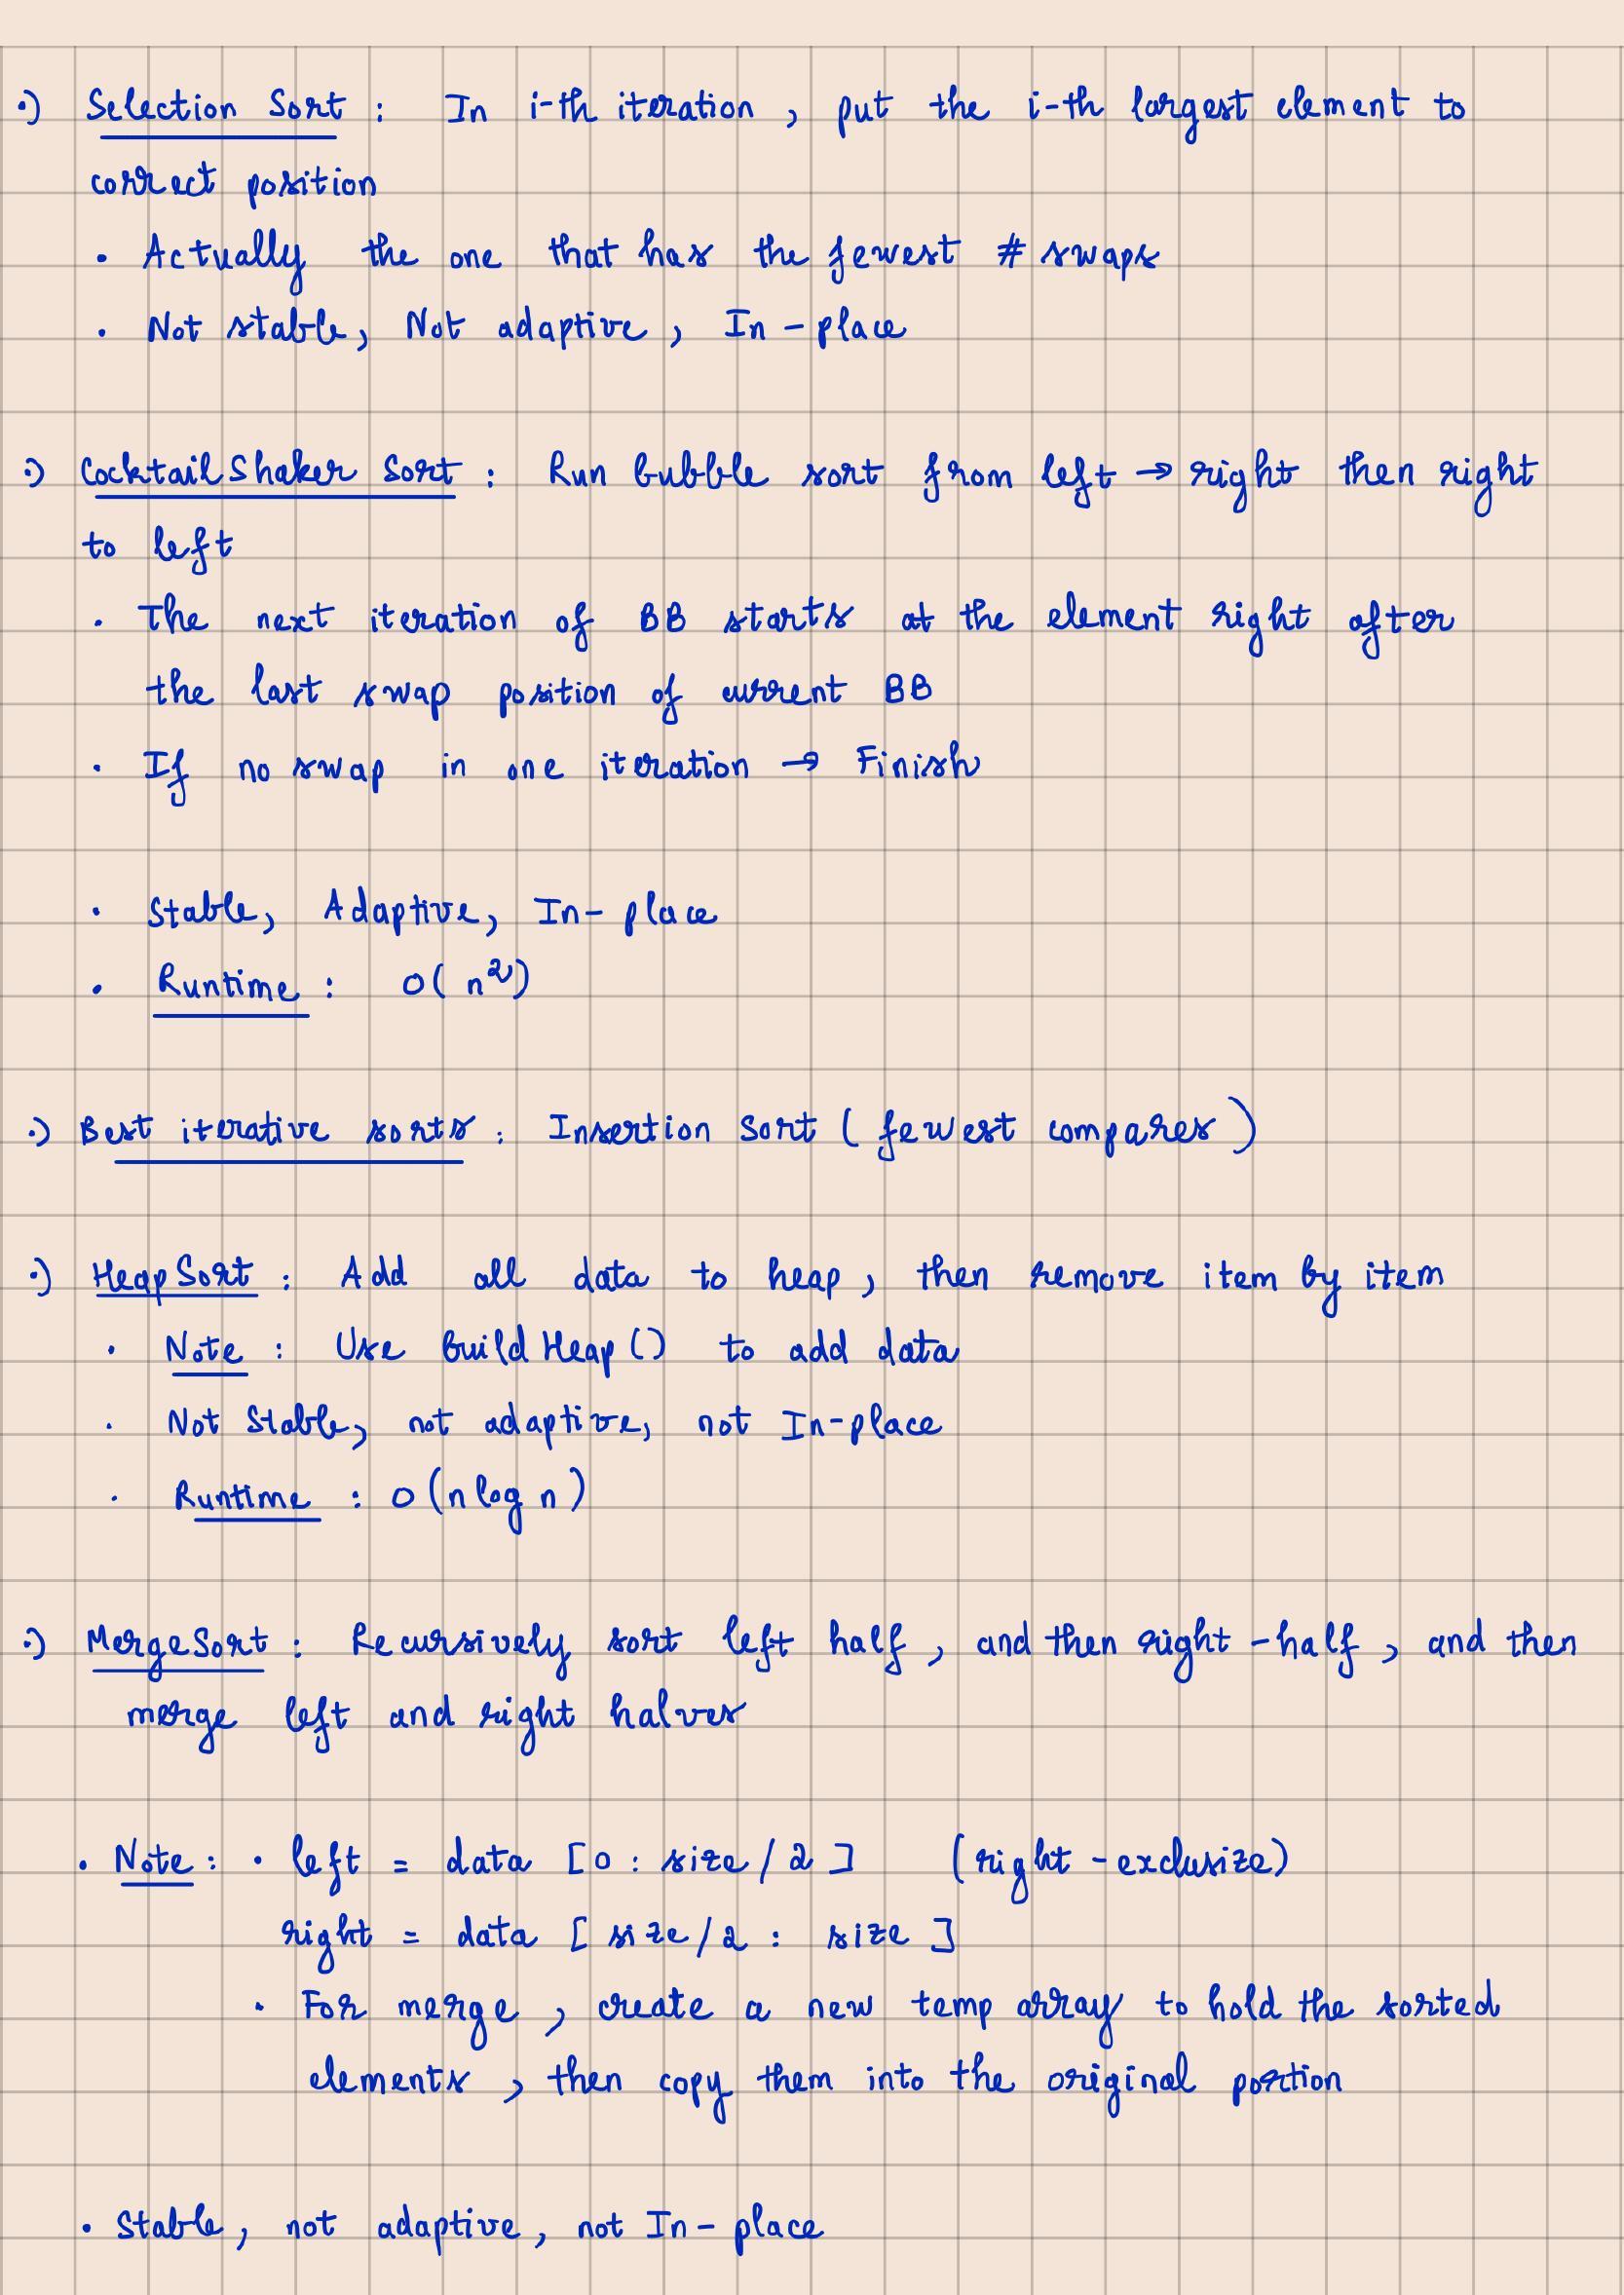 ·) Selection Sort : In i-th iteration , put the i-th largest element to
correct position
· Actually the one that has the fewest # swaps
· Not stable, Not adaptive , In-place
·) Cocktail Shaker Sort : Run bubble sort from left → right then right
to left
· The next iteration of BB starts at the element right after
the last swap position of current BB
· If no swap in one iteration → Finish
· Stable, Adaptive, In-place
· Runtime : O( n²)
·) Best iterative sorts : Insertion Sort ( fewest compares )
·) Heap Sort : Add all data to heap , then remove item by item
· Note : Use Build Heap () to add data
· Not Stable, not adaptive, not In-place
· Runtime : O (n log n )
·) Merge Sort : Recursively sort left half , and then right -half , and then
merge left and right halves
· Note : · left = data [0 : size / 2 ] (right -exclusize)
right = data [ size/2 : size ]
· For merge , create a new temp array to hold the sorted
elements , then copy them into the original portion
· Stable , not adaptive , not In-place